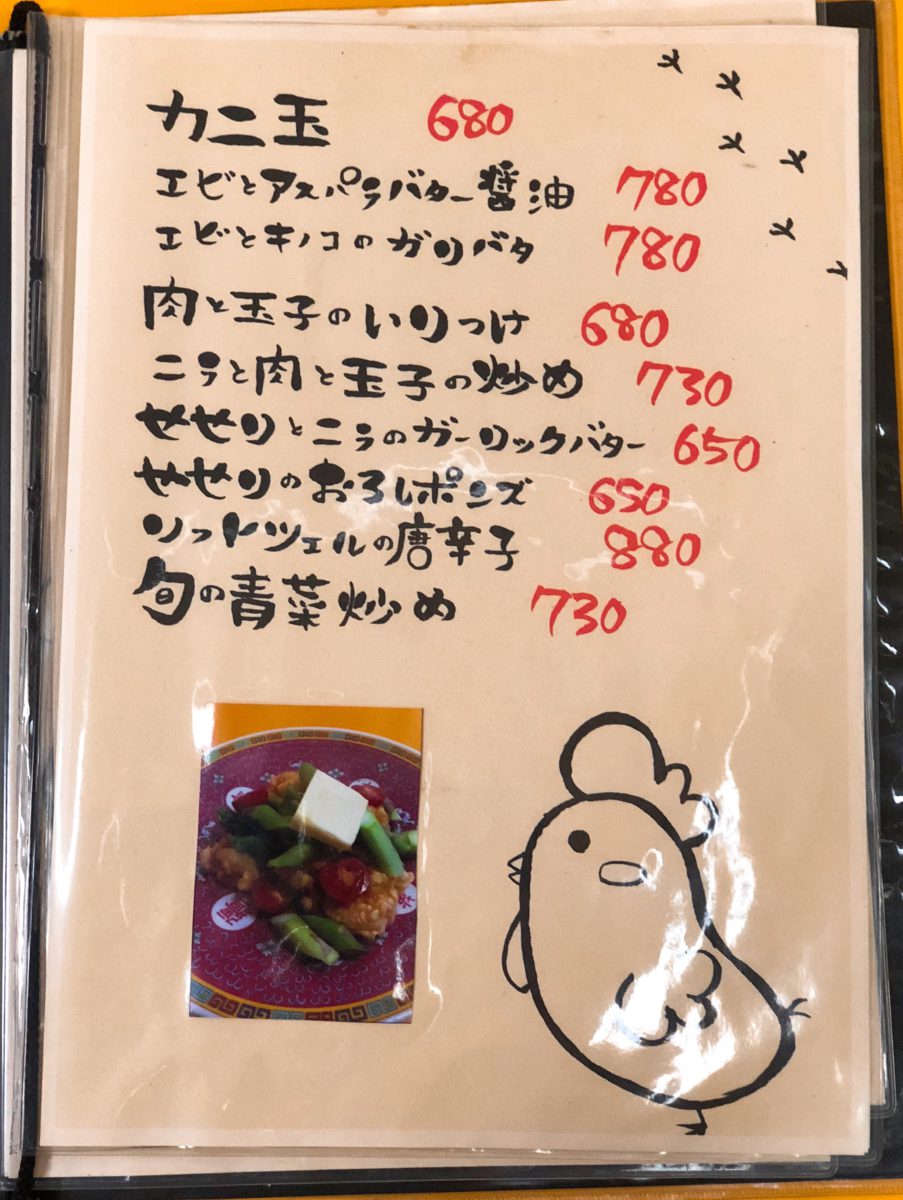 カニ玉 680
エビとアスパラバター醤油 780
エビとキノコのガリバタ 780
肉と玉子のいりつけ 680
ニラと肉と玉子の炒め 730
せせりとニラのガーリックバター 650
せせりのおろしポンズ 650
ソフトシェルの唐辛子 880
旬の青菜炒め 730